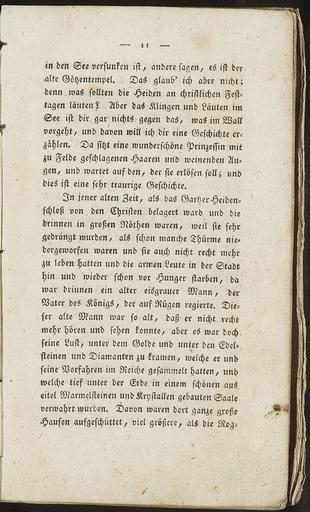 — 11 —
in den See versunken ist, andere sagen, es ist der
alte Götzentempel. Das glaub' ich aber nicht;
denn was sollten die Heiden an christlichen Fest-
tagen läuten? Aber das Klingen und Läuten im
See ist dir gar nichts gegen das, was im Wall
vorgeht, und davon will ich dir eine Geschichte er-
zählen. Da sitzt eine wunderschöne Prinzessin mit
zu Felde geschlagenen Haaren und weinenden Au-
gen, und wartet auf den, der sie erlösen soll; und
dies ist eine sehr traurige Geschichte.
In jener alten Zeit, als das Gartzer-Heiden-
schloß von den Christen belagert ward und die
drinnen in großen Nöthen waren, weil sie sehr
gedrängt wurden, als schon manche Thürme nie-
dergeworfen waren und sie auch nicht recht mehr
zu leben hatten und die armen Leute in der Stadt
hin und wieder schon vor Hunger starben, da
war drinnen ein alter eisgrauer Mann, der
Vater des Königs, der auf Rügen regierte. Die-
ser alte Mann war so alt, daß er nicht recht
mehr hören und sehen konnte, aber es war doch
seine Lust, unter dem Golde und unter den Edel-
steinen und Diamanten zu kramen, welche er und
seine Vorfahren im Reiche gesammelt hatten, und
welche tief unter der Erde in einem schönen aus
eitel Marmelsteinen und Krystallen gebauten Saale
verwahrt wurden. Davon waren dort ganze große
Haufen aufgeschüttet, viel größere, als die Rog-